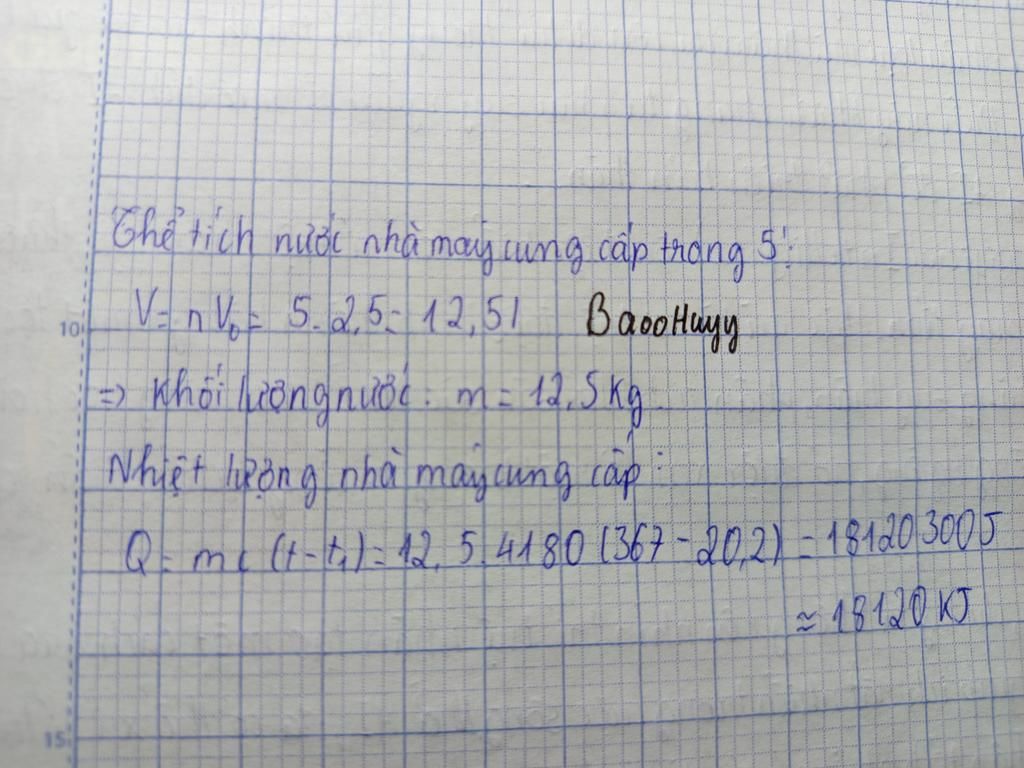 Thể tích nước nhà máy cung cấp trong 5':
V = nV₀ = 5.2,5 = 12,5l BaooHuyy
10
=> Khối lượng nước: m = 12,5kg
Nhiệt lượng nhà máy cung cấp:
Q = mc (t-t₁) = 12,5.4180 (367-20,2) = 18120300J
≈ 18120 KJ
15